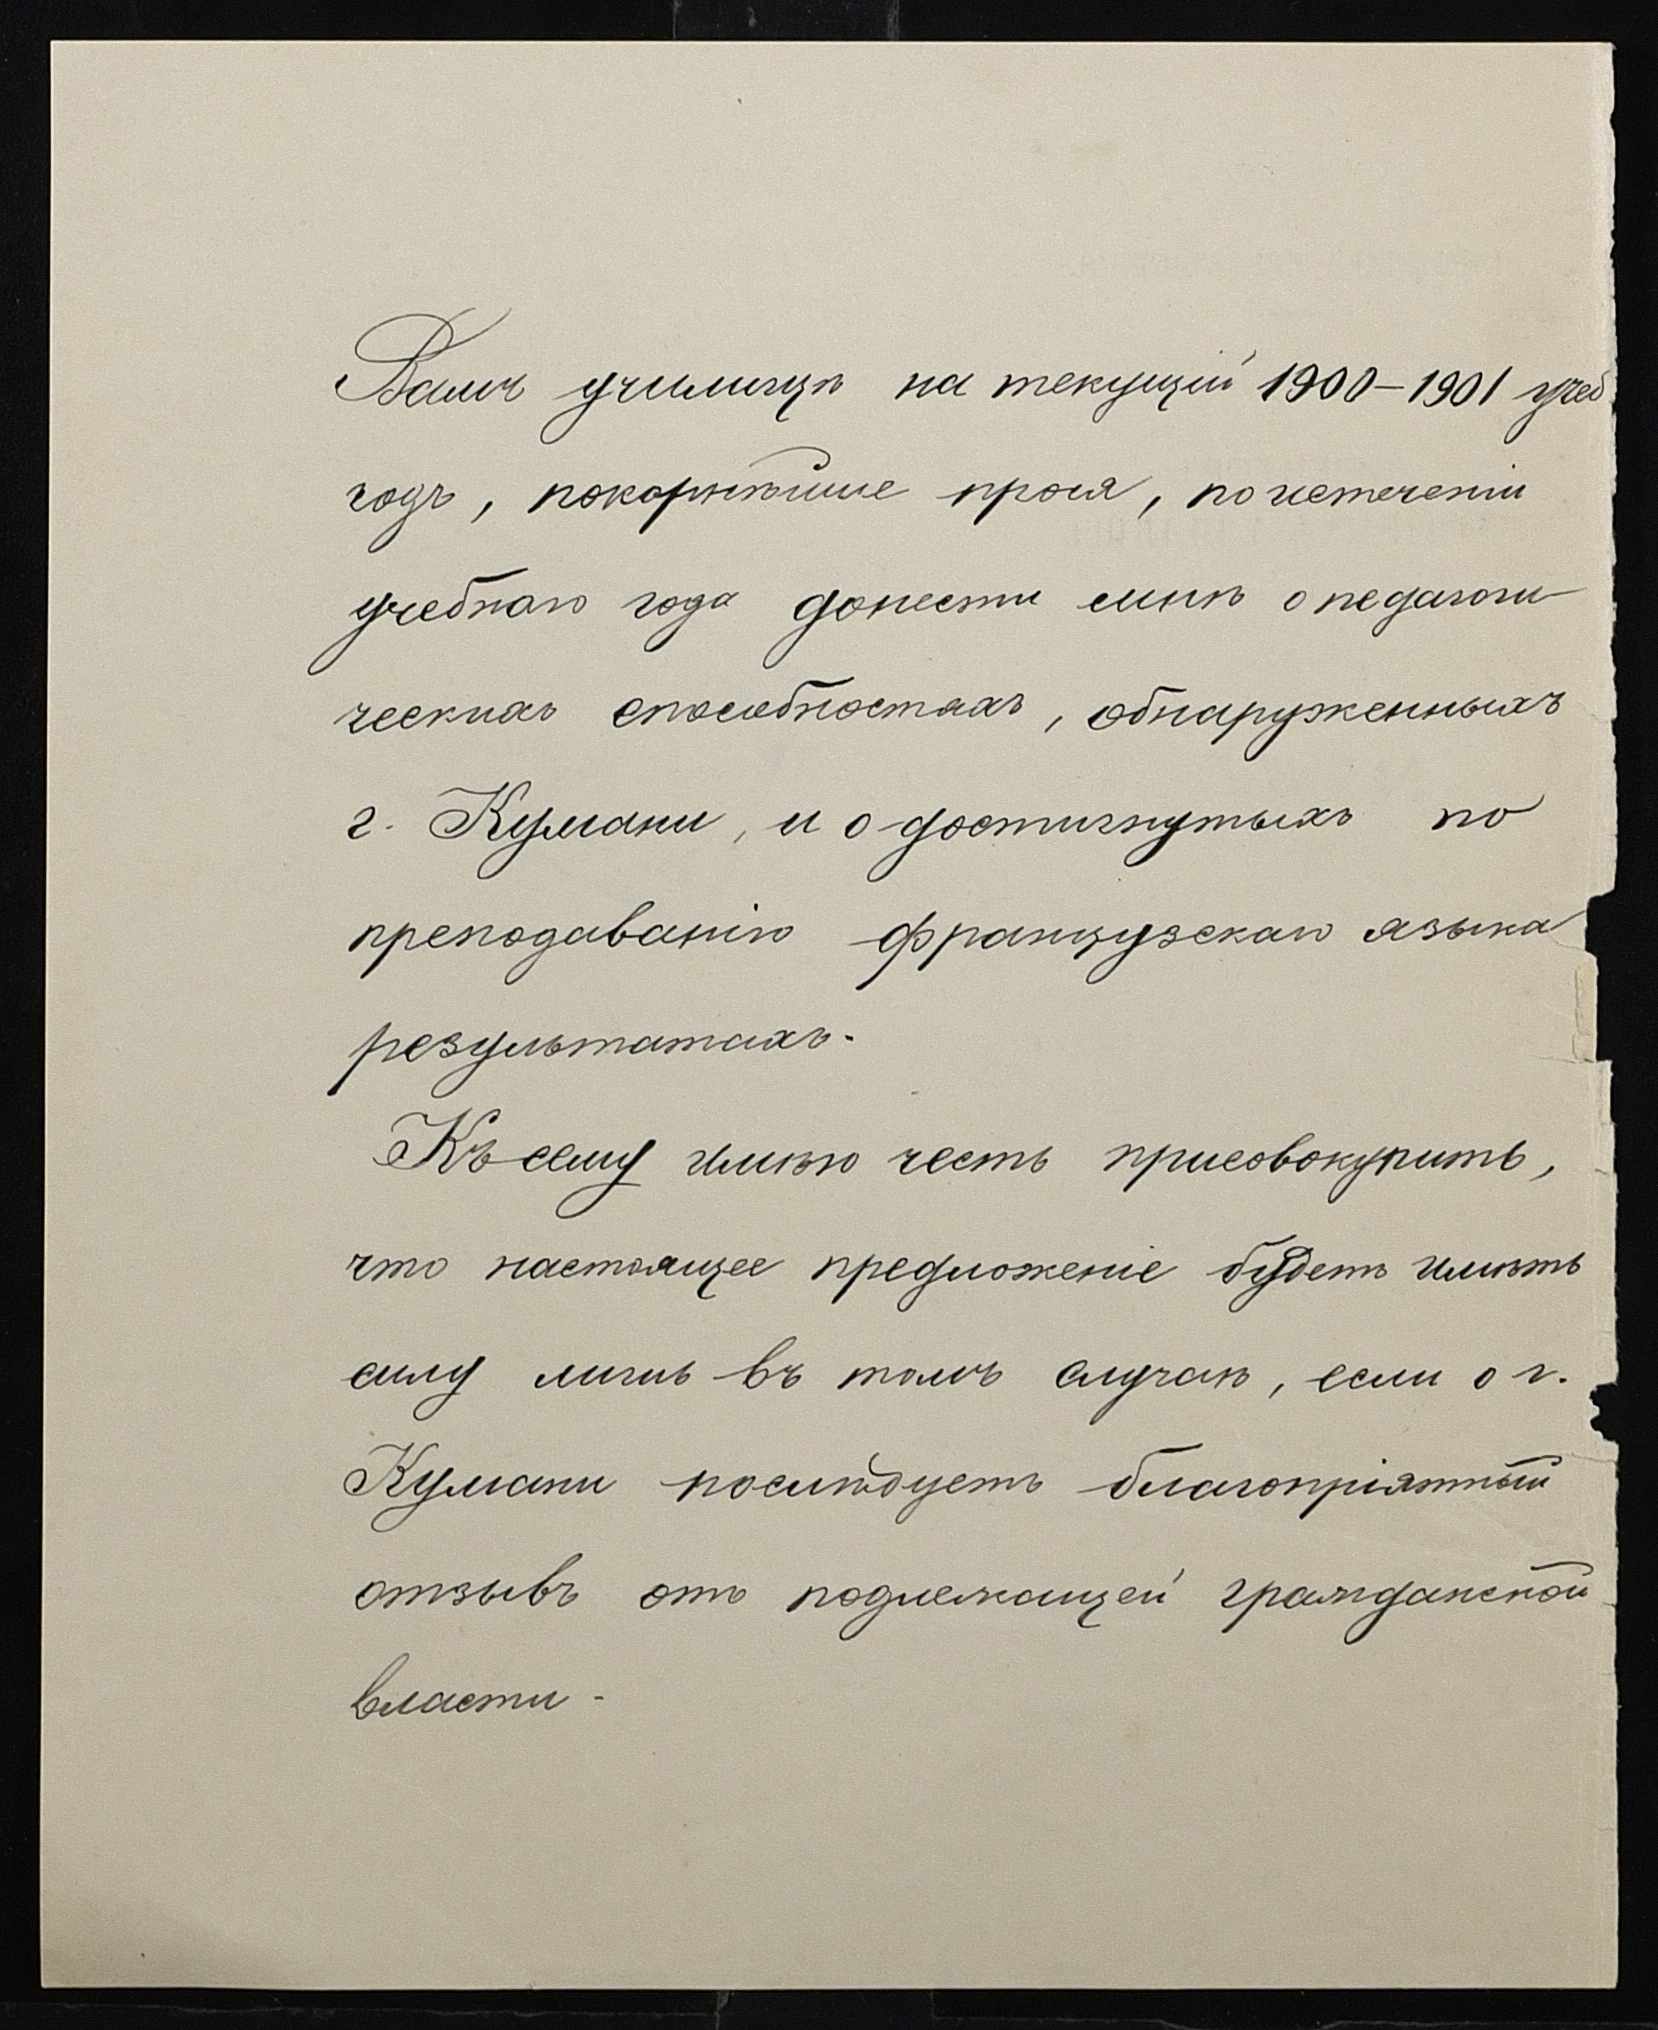 Вамъ училищѣ на текущій 1900-1901 учеб
годъ, покорнѣйше прося, по истеченіи
учебнаго года донести мнѣ о педагоги-
ческихъ способностяхъ, обнаруженныхъ
г. Кумани, и о достигнутыхъ по
преподаванію французскаго языка
результатахъ.
Къ сему имѣю честь присовокупить,
что настоящее предложеніе будетъ имѣть
силу лишь въ томъ случаѣ, если о г.
Кумани послѣдуетъ благопріятный
отзывъ отъ подлежащей гражданской
власти.